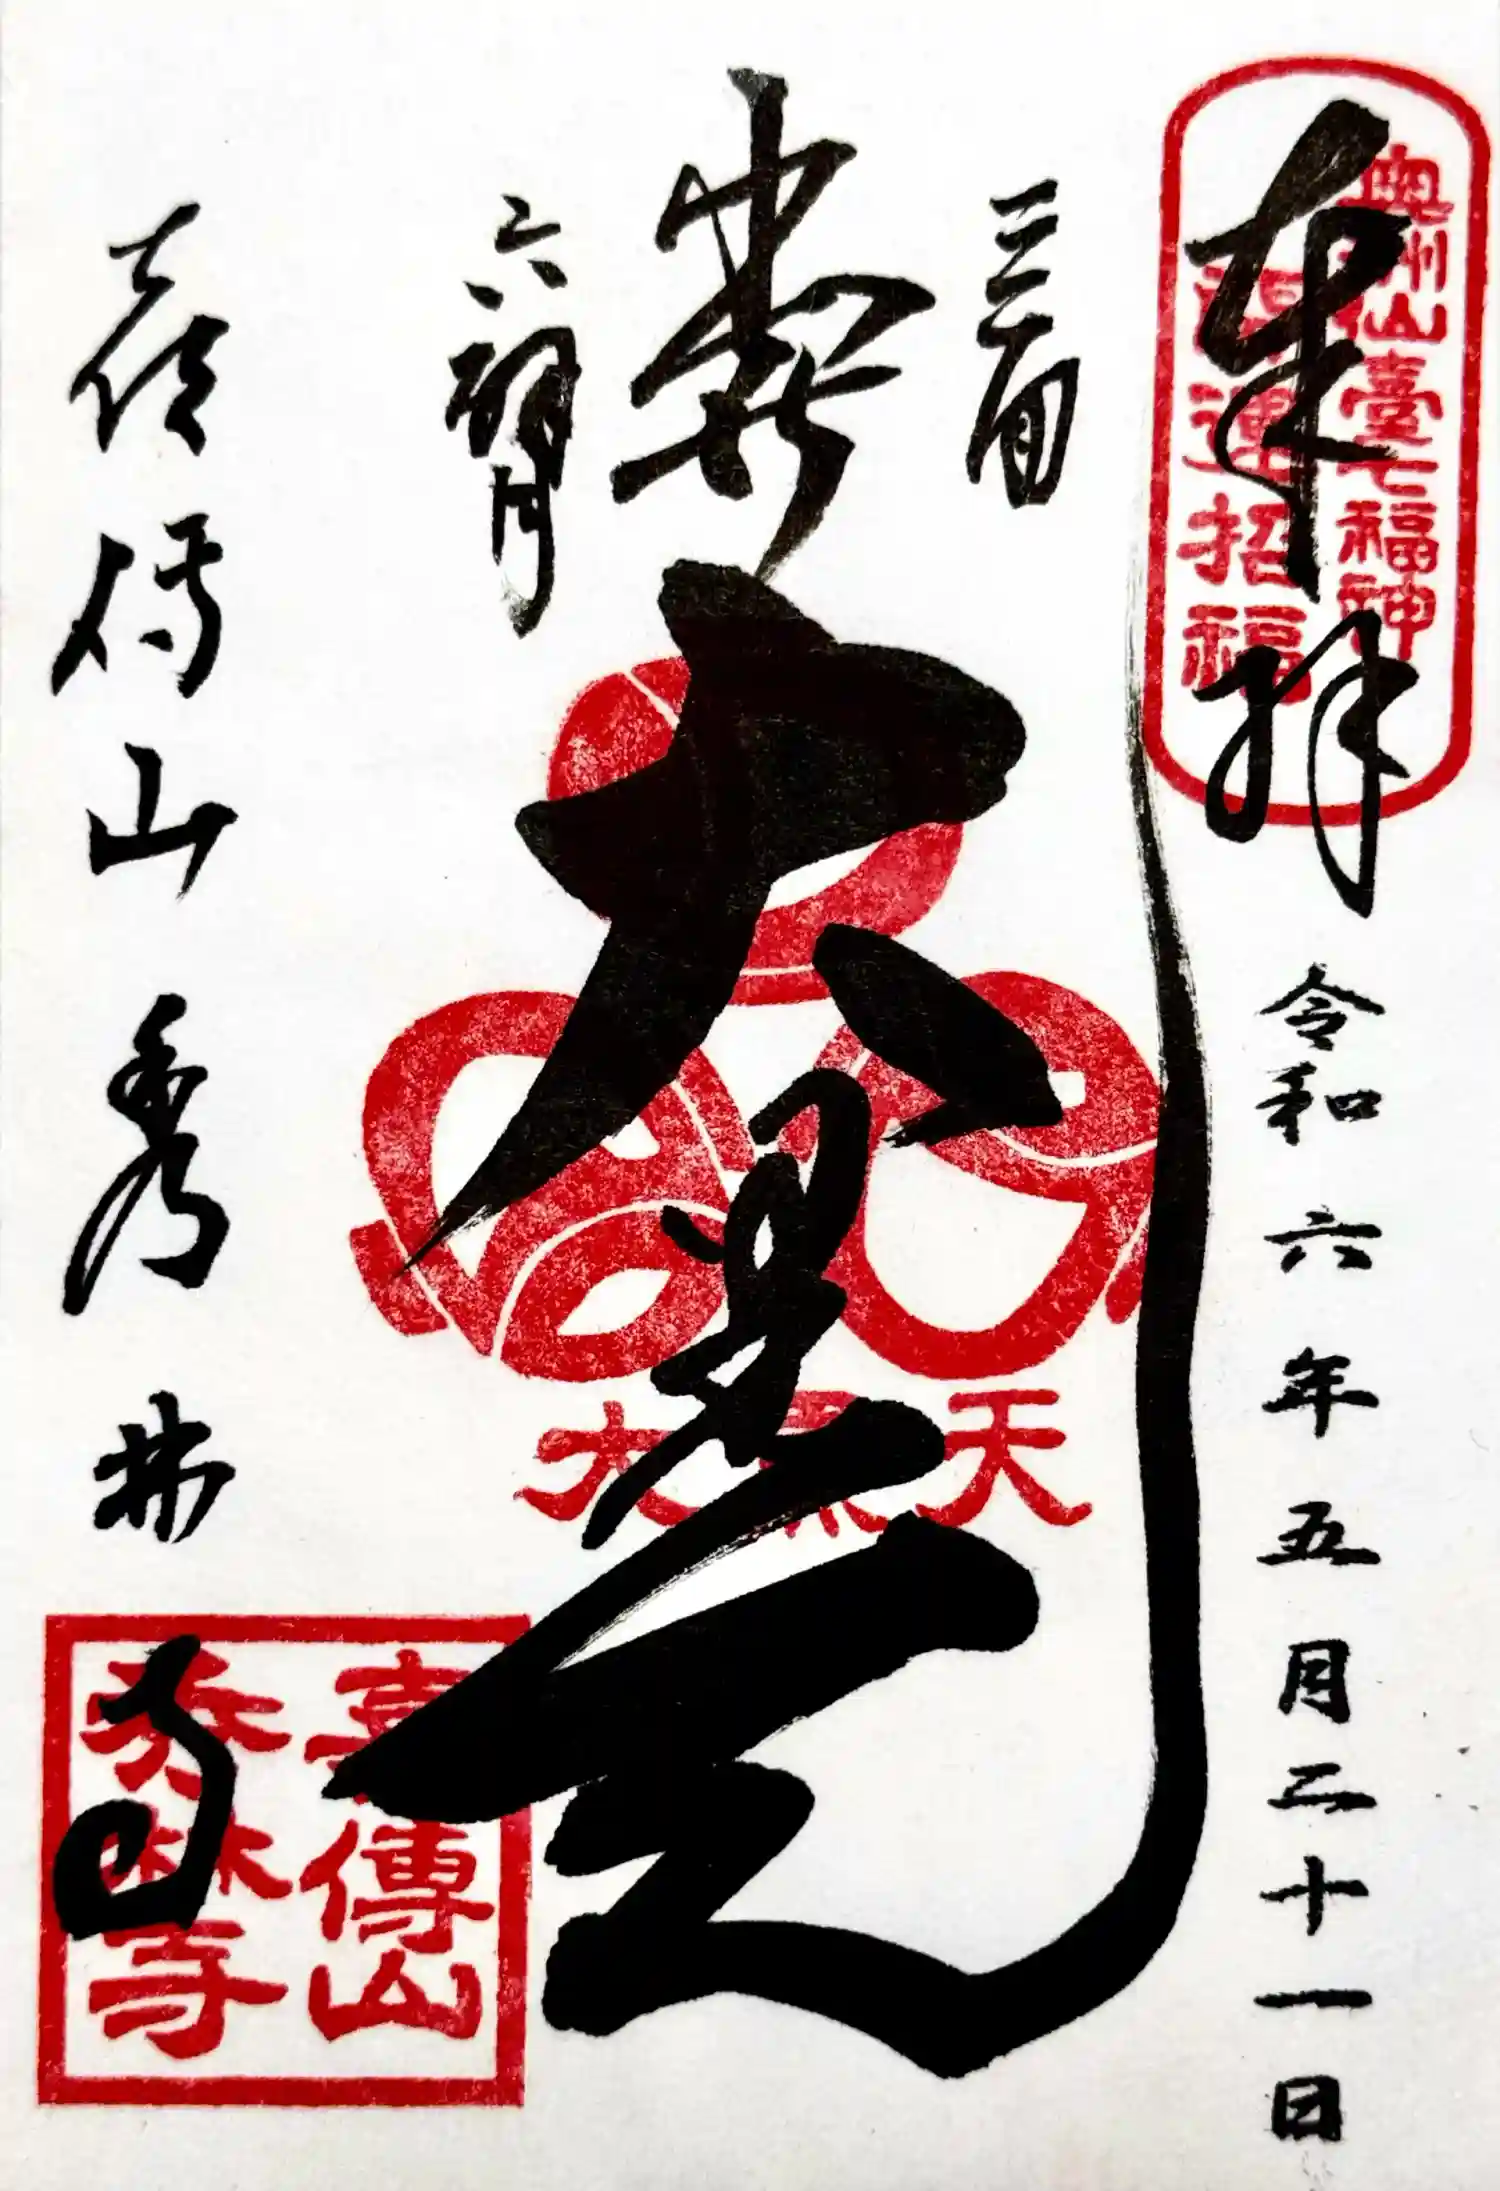 奉拝
奥州仙臺七福神
開運招福
令和六年五月二十一日
三面
六臂
大黒天
大黒天
喜傳山秀林寺
喜傳山
秀林寺